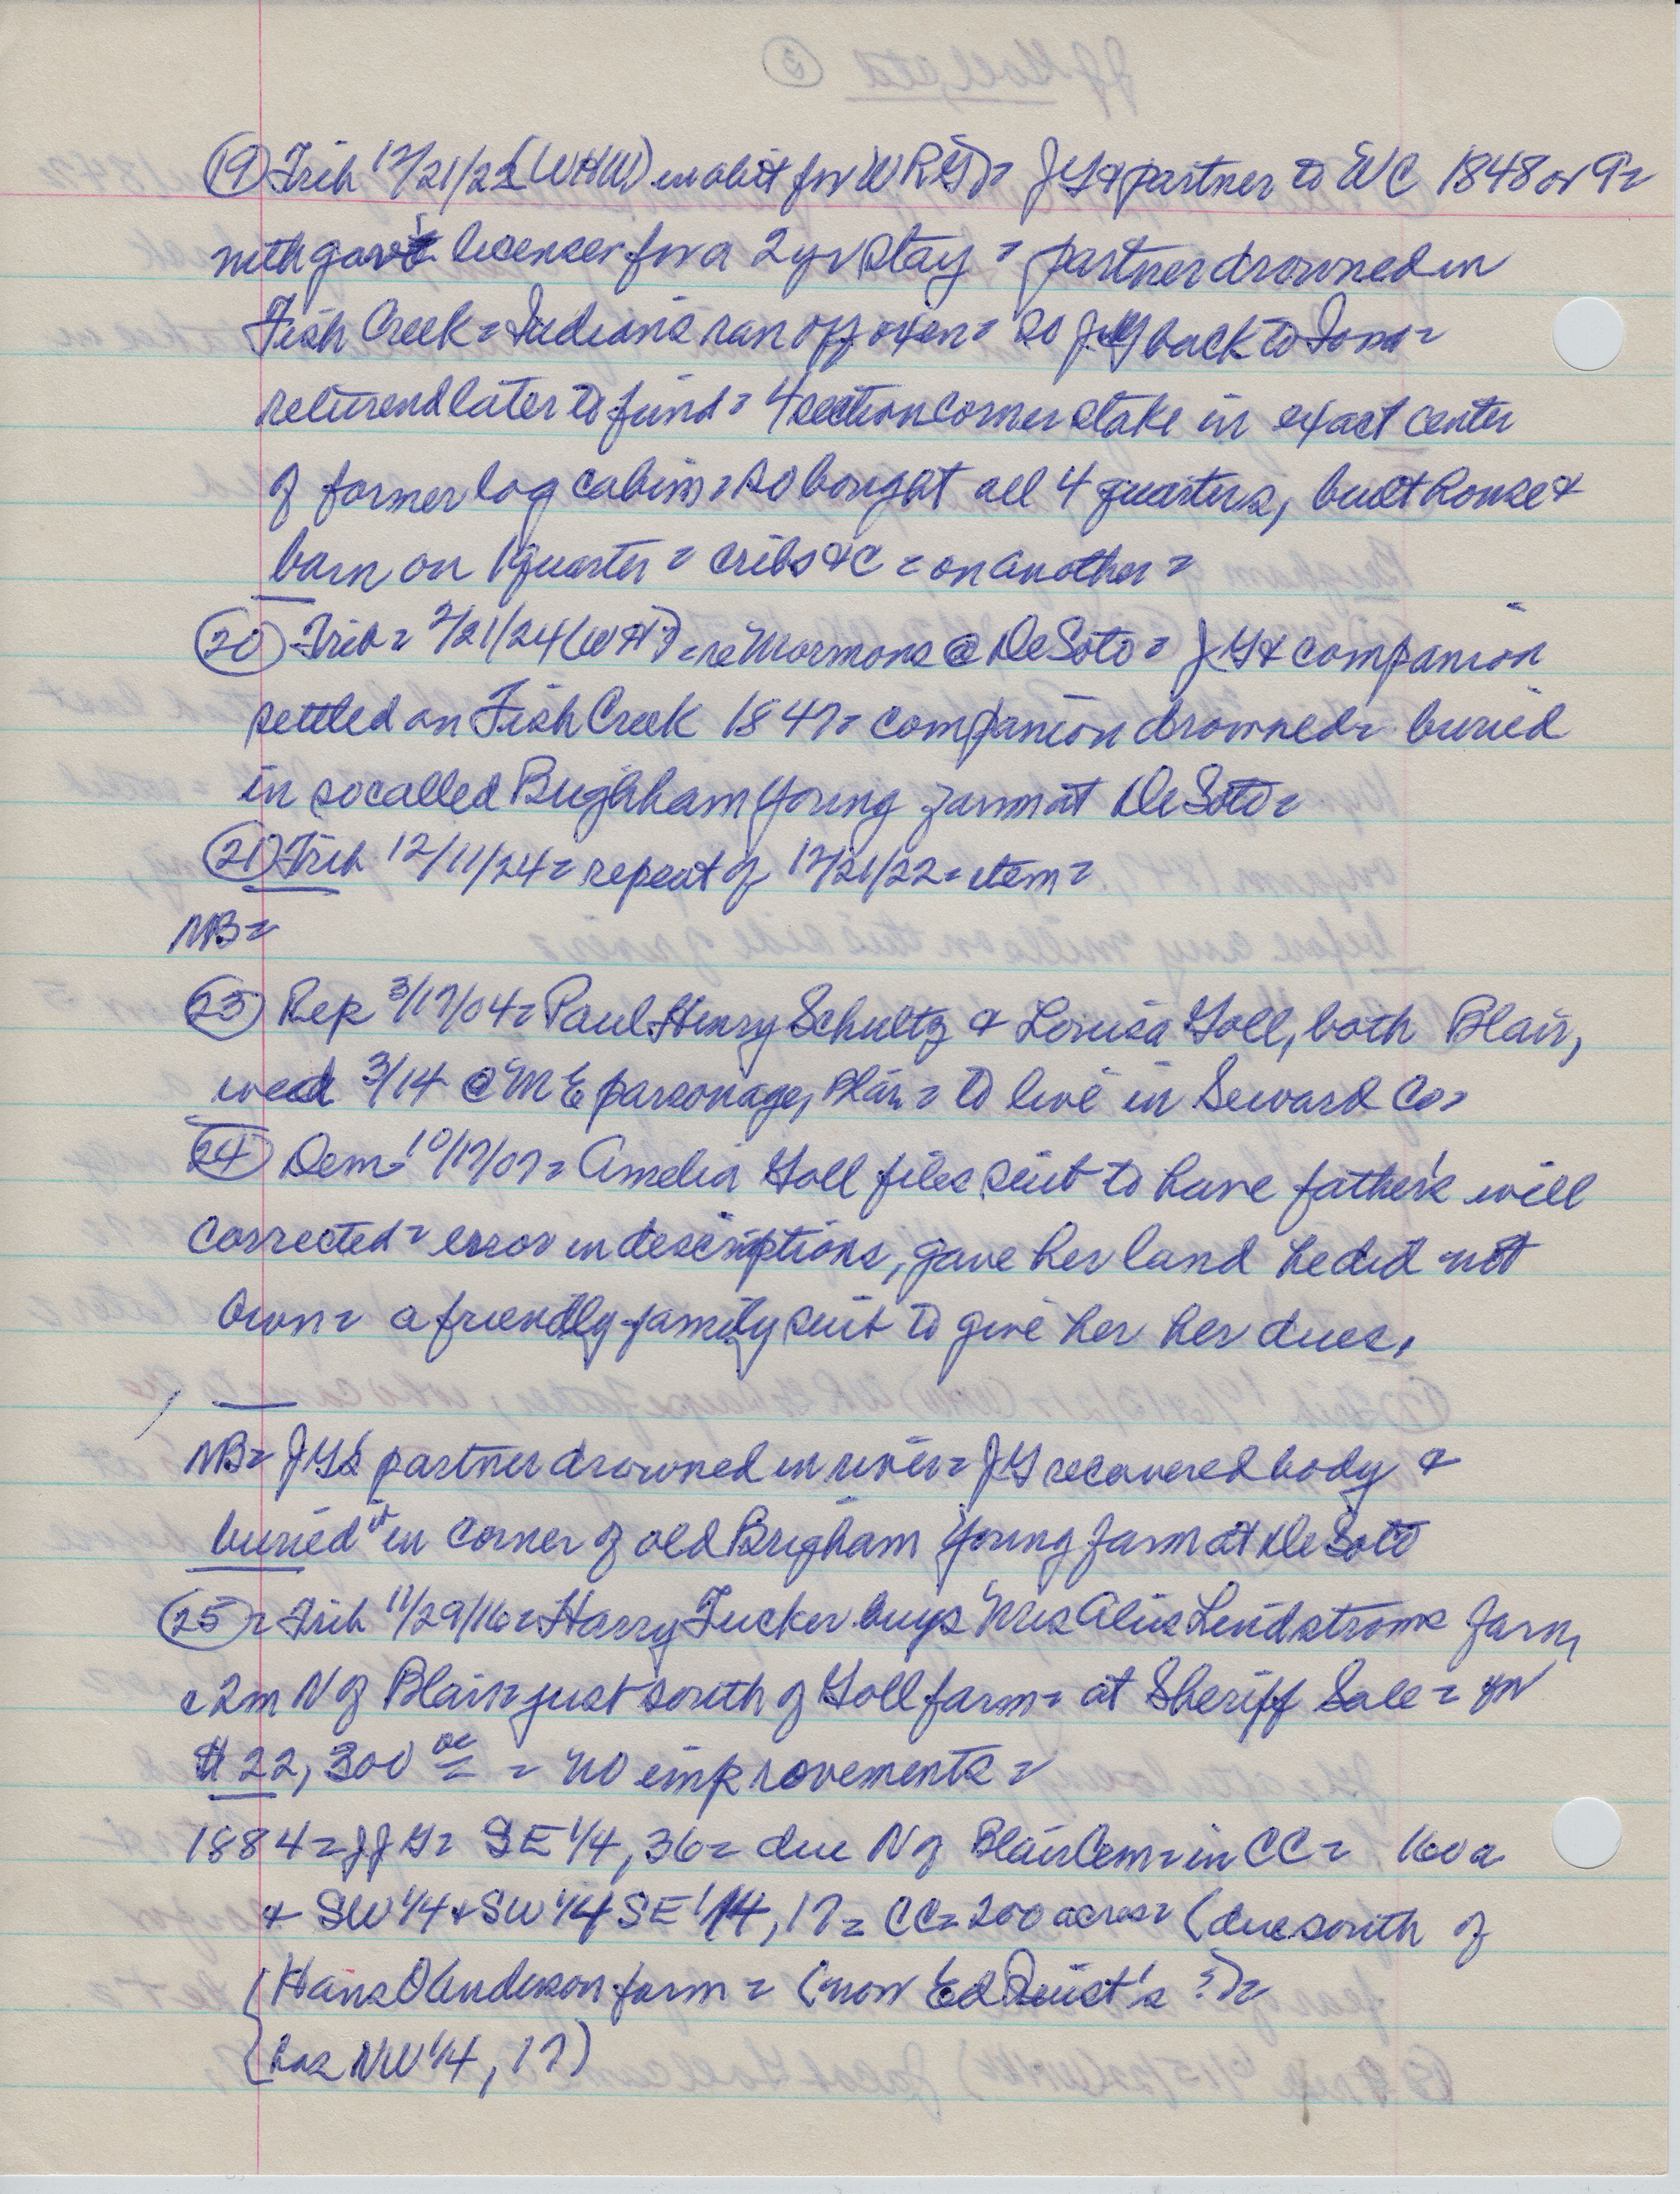 (19) Trib 12/21/22 (WHW) in obit for WRG = JG & partner to WC 1848 or 9 =
with gov't licenses for a 2 yr stay = partner drowned in
Fish Creek = Indians ran off oxen = so JG back to Iowa =
returend later to find = 4 section corner stake in exact center
of former log cabin = so bought all 4 quarters, built house &
barn on 1 quarter = cribs &c = on another =
(20) Trib = 2/21/24 (WH) = re Mormons @ DeSoto = JG & companion
settled on Fish Creek 1847 = companion drowned = buried
in socalled Brigham Young farm at DeSoto =
(21) Trib 12/11/24 = repeat of 12/21/22 = item =
NB =
(23) Rep 3/17/04 = Paul Henry Schultz & Louisa Goll, both Blair,
wed 3/14 @ ME parsonage, Blair = to live in Seward Co =
(24) Dem = 10/17/07 = Amelia Goll files suit to have father's will
corrected = error in descriptions, gave her land he did not
own = a friendly family suit to give her her dues.
NB = JG's partner drowned in river = JG recovered body &
buried it in corner of old Brigham Young farm at DeSoto
(25) = Trib 11/29/16 = Harry Tucker buys Mrs Lindstroms farm,
c 2m N of Blair = just south of Goll farm = at Sheriff Sale = for
$22,300 00 = no improvements =
1884 = JJG = SE 1/4, 36 = due N of Blair Cem = in CC = 160 a
& SW 1/4 & SW 1/4 SE 1/4, 17 = CC = 200 acres = (due south of
Hans O Anderson farm = (now Ed Quist's ?) =
has NW 1/4, 17)